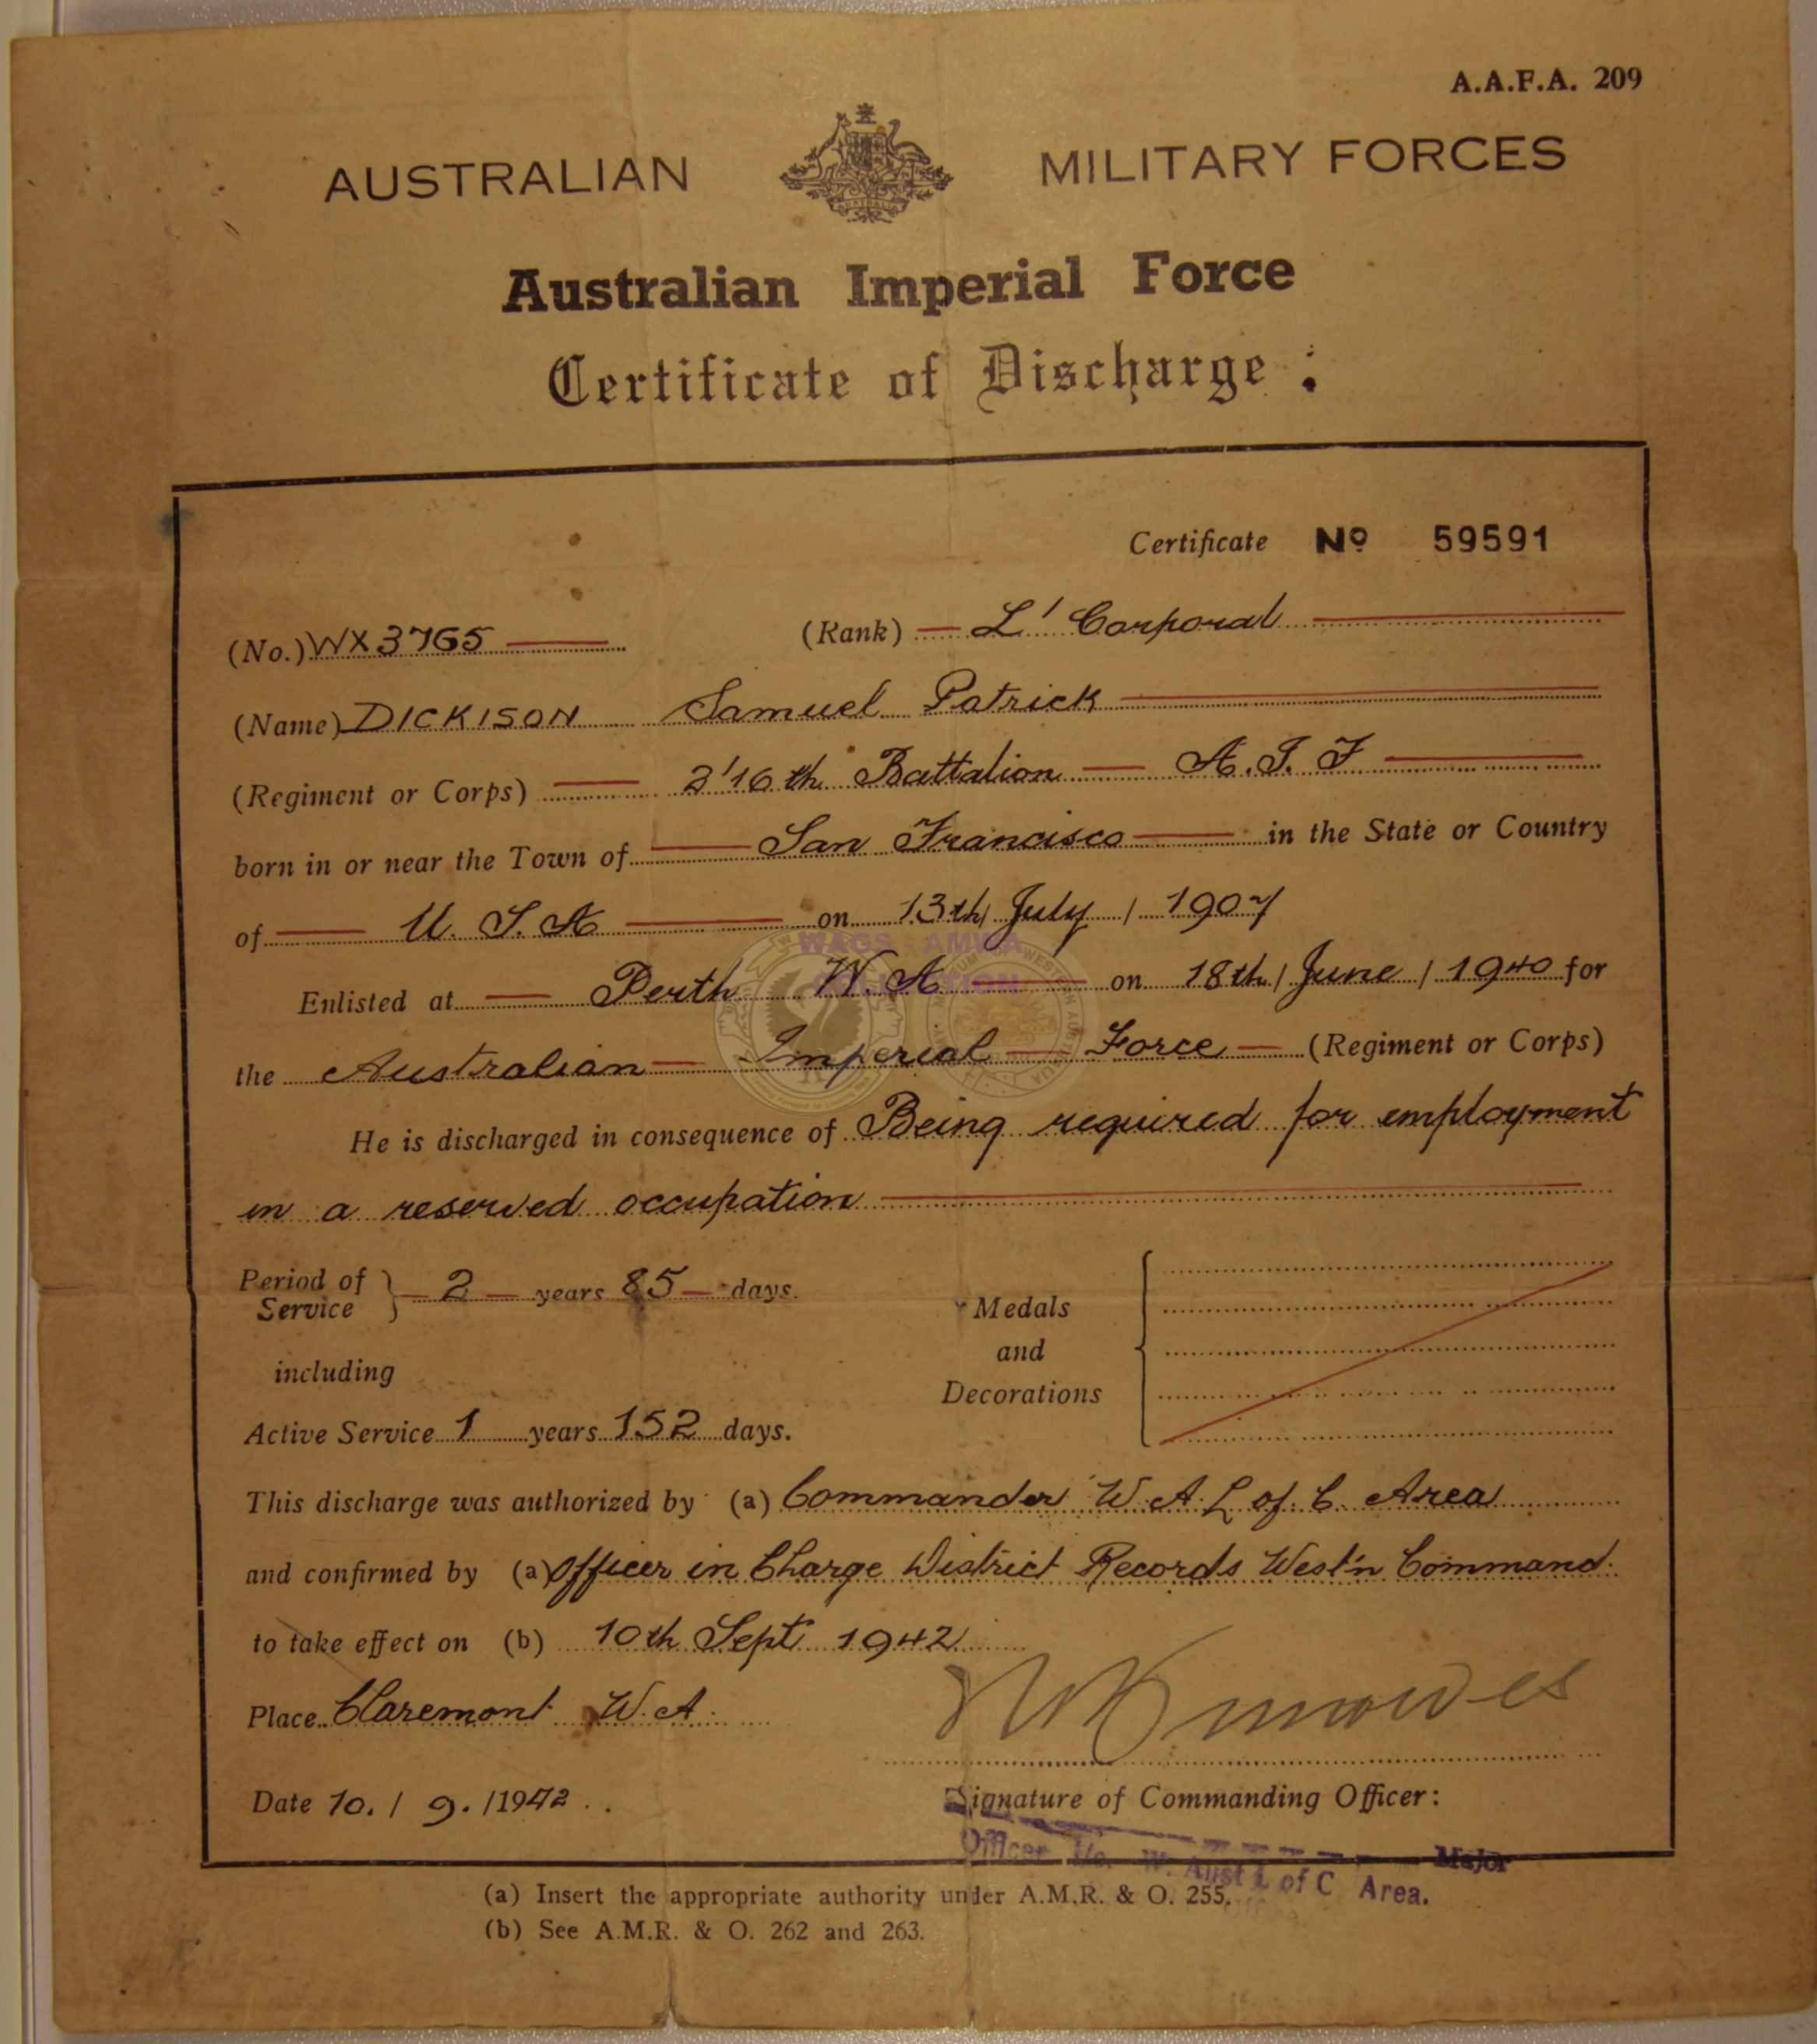 A.A.F.A. 209
AUSTRALIAN MILITARY FORCES
AUSTRALIA
Australian Imperial Force
Certificate of Discharge :
Certificate Nº 59591
(No.) WX3765 (Rank) L' Corporal
(Name) DICKISON Samuel Patrick
(Regiment or Corps) 2'16th Battalion — A.I.F
born in or near the Town of San Francisco in the State or Country
of U.S.A on 13th July / 1907
WAGS AMWA
COLLECTION
Enlisted at Perth W.A on 18th / June / 1940 for
the Australian — Imperial — Force — (Regiment or Corps)
He is discharged in consequence of Being required for employment
in a reserved occupation
Period of Service } 2 years 85 days.
including
Active Service 1 years 152 days.
Medals
and
Decorations
This discharge was authorized by (a) Commander W.A. L of C. Area
and confirmed by (a) Officer in Charge District Records West'n Command.
to take effect on (b) 10th Sept 1942
Place Claremont W.A.
Date 10. / 9. /1942 . .
Signature of Commanding Officer :
Major
Officer i/c. W. Aust L of C Area.
(a) Insert the appropriate authority under A.M.R. & O. 255.
(b) See A.M.R. & O. 262 and 263.